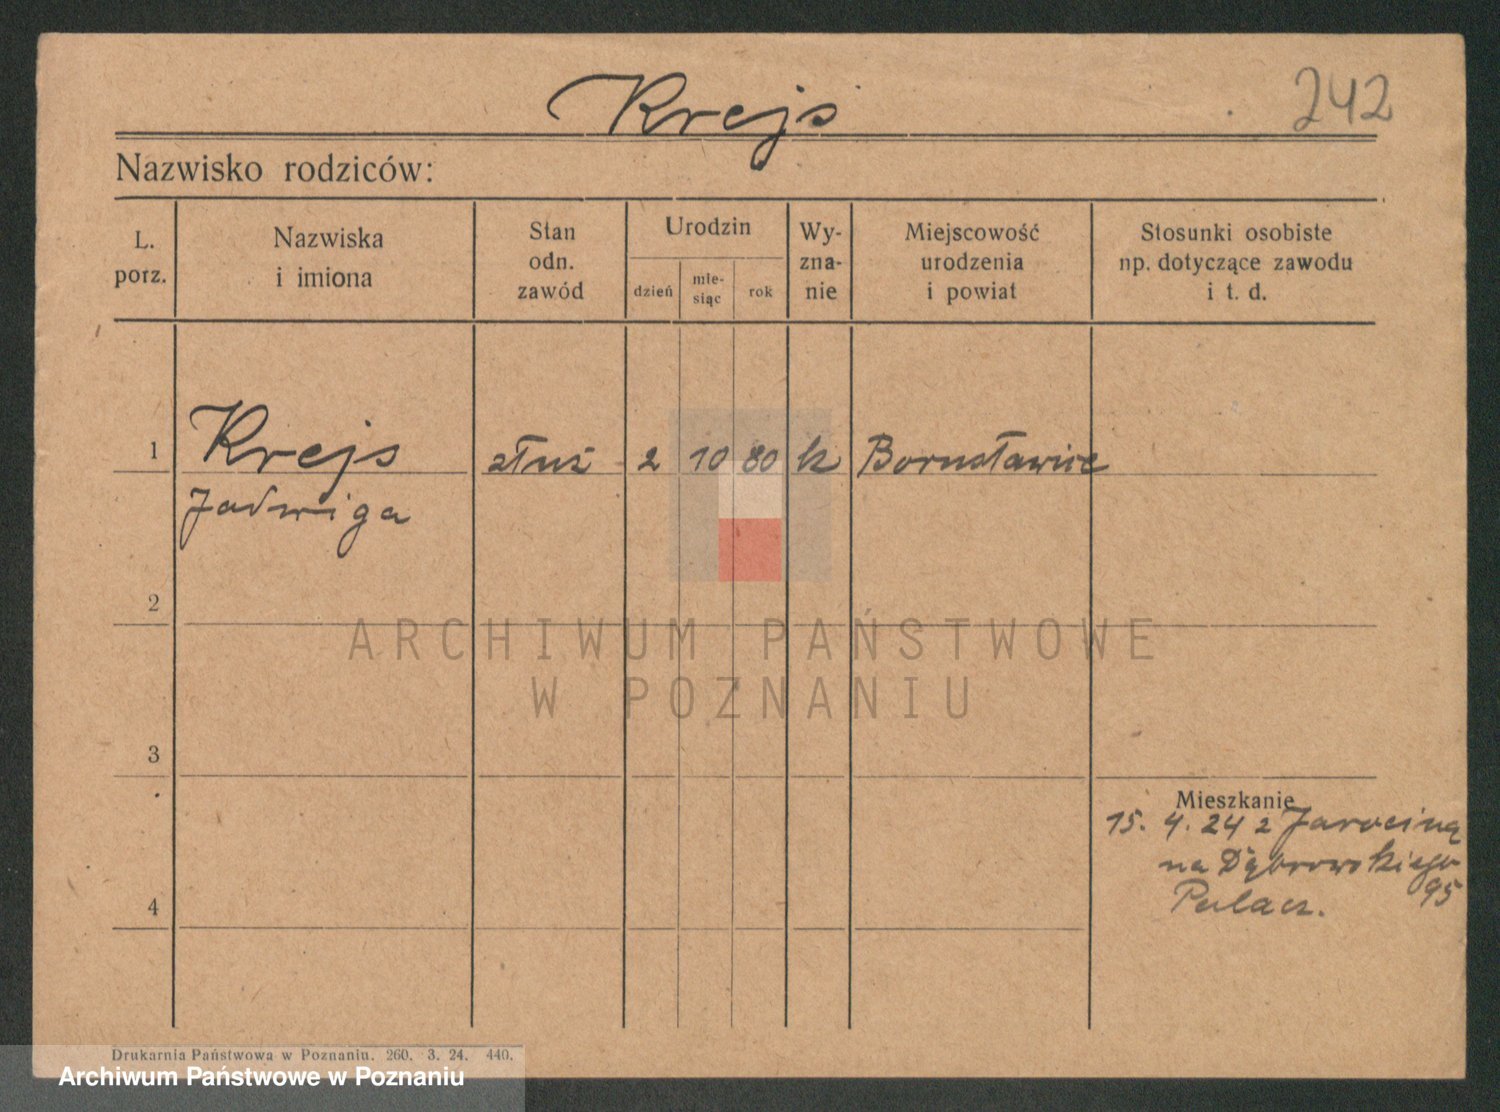 Krejs
242
Nazwisko rodziców:
L. porz.
Nazwiska i imiona
Stan odn. zawód
Urodzin
dzień
mie-siąc
rok
Wy-zna-nie
Miejscowość urodzenia i powiat
Stosunki osobiste np. dotyczące zawodu i t. d.
1 Krejs służ 2 10 80 k Borusławice
Jadwiga
2
ARCHIWUM PAŃSTWOWE
W POZNANIU
3
Mieszkanie
15. 4. 24 z Jarocina
na Dąbrowskiego
95
4
Drukarnia Państwowa w Poznaniu. 260. 3. 24. 440.
Archiwum Państwowe w Poznaniu